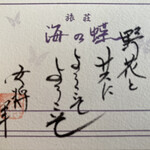 旅荘
海の蝶
野花と
共に
ようこそ
ようこそ
女将